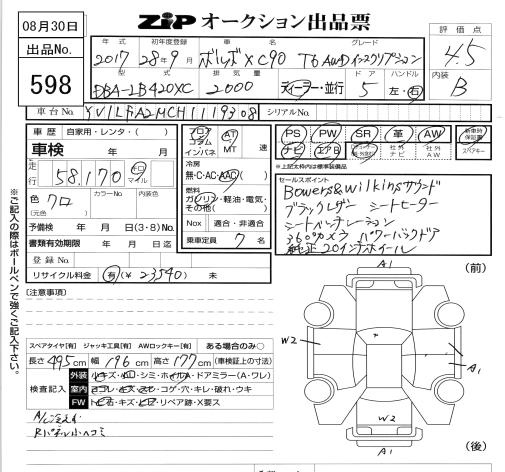 08月30日
ZIP オークション出品票
出品No.
598
年式 初年度登録 車名 グレード
2017 28年9月 ボルボXC90 T6 AWD インスクリプション
型式 排気量 ドア ハンドル
DBA-LB420XC 2000 ディーラー・並行 5 左・右
評価点
4.5
内装
B
車台No. YV1LFA2MCH1119308 シリアルNo.
車歴 自家用・レンタ・( )
車検 年 月
走行 58,170 キロ マイル
色 クロ カラーNo. 内装色
(元色) ( )
予備検 年 月 日(3・8)No.
書類有効期限 年 月 日迄
登録No.
リサイクル料金 有(¥ 23540) 未
フロア コラム インパネ AT MT 速
冷房
無・C・AC・AAC( )
燃料
ガソリン・軽油・電気・その他( )
Nox 適合・非適合
乗車定員 7 名
PS PW SR 革 AW 新車時保証書
ナビ エアB 社外ナビ 社外AW スペアキー
※上記太枠内は標準装備品
セールスポイント
Bowers&wilkinsサウンド
ブラックレザー シートヒーター
シートベンチレーション
360°カメラ パワーバックドア
純正20インチホイール
※ご記入の際はボールペンで強くご記入下さい。
[注意事項]
スペアタイヤ[有] ジャッキ工具[有] AWロックキー[有] ある場合のみ○
長さ 495cm 幅 196cm 高さ 177cm (車検証上の寸法)
検査記入
外装 小キズ・凹・シミ・ホイルA・ドアミラー(A・ワレ)
室内 ヨゴレ・キズ・スレ・コゲ・穴・キレ・破れ・ウキ
FW トビ石・キズ・ヒビ・リペア跡・X要ス
Rパネル小ヘコミ
A1
(前)
W2
A1
W2
A1
(後)